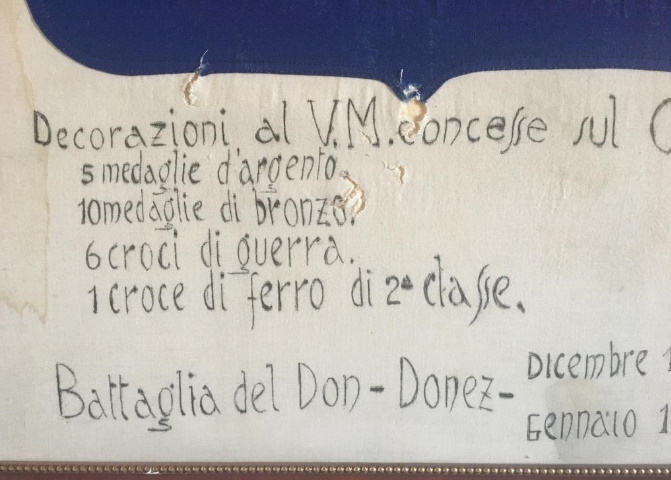 Decorazioni al V.M. concesse sul
5 medaglie d'argento.
10 medaglie di bronzo.
6 croci di guerra.
1 croce di ferro di 2ª classe.
Battaglia del Don - Donez - Dicembre 1
Gennaio 1